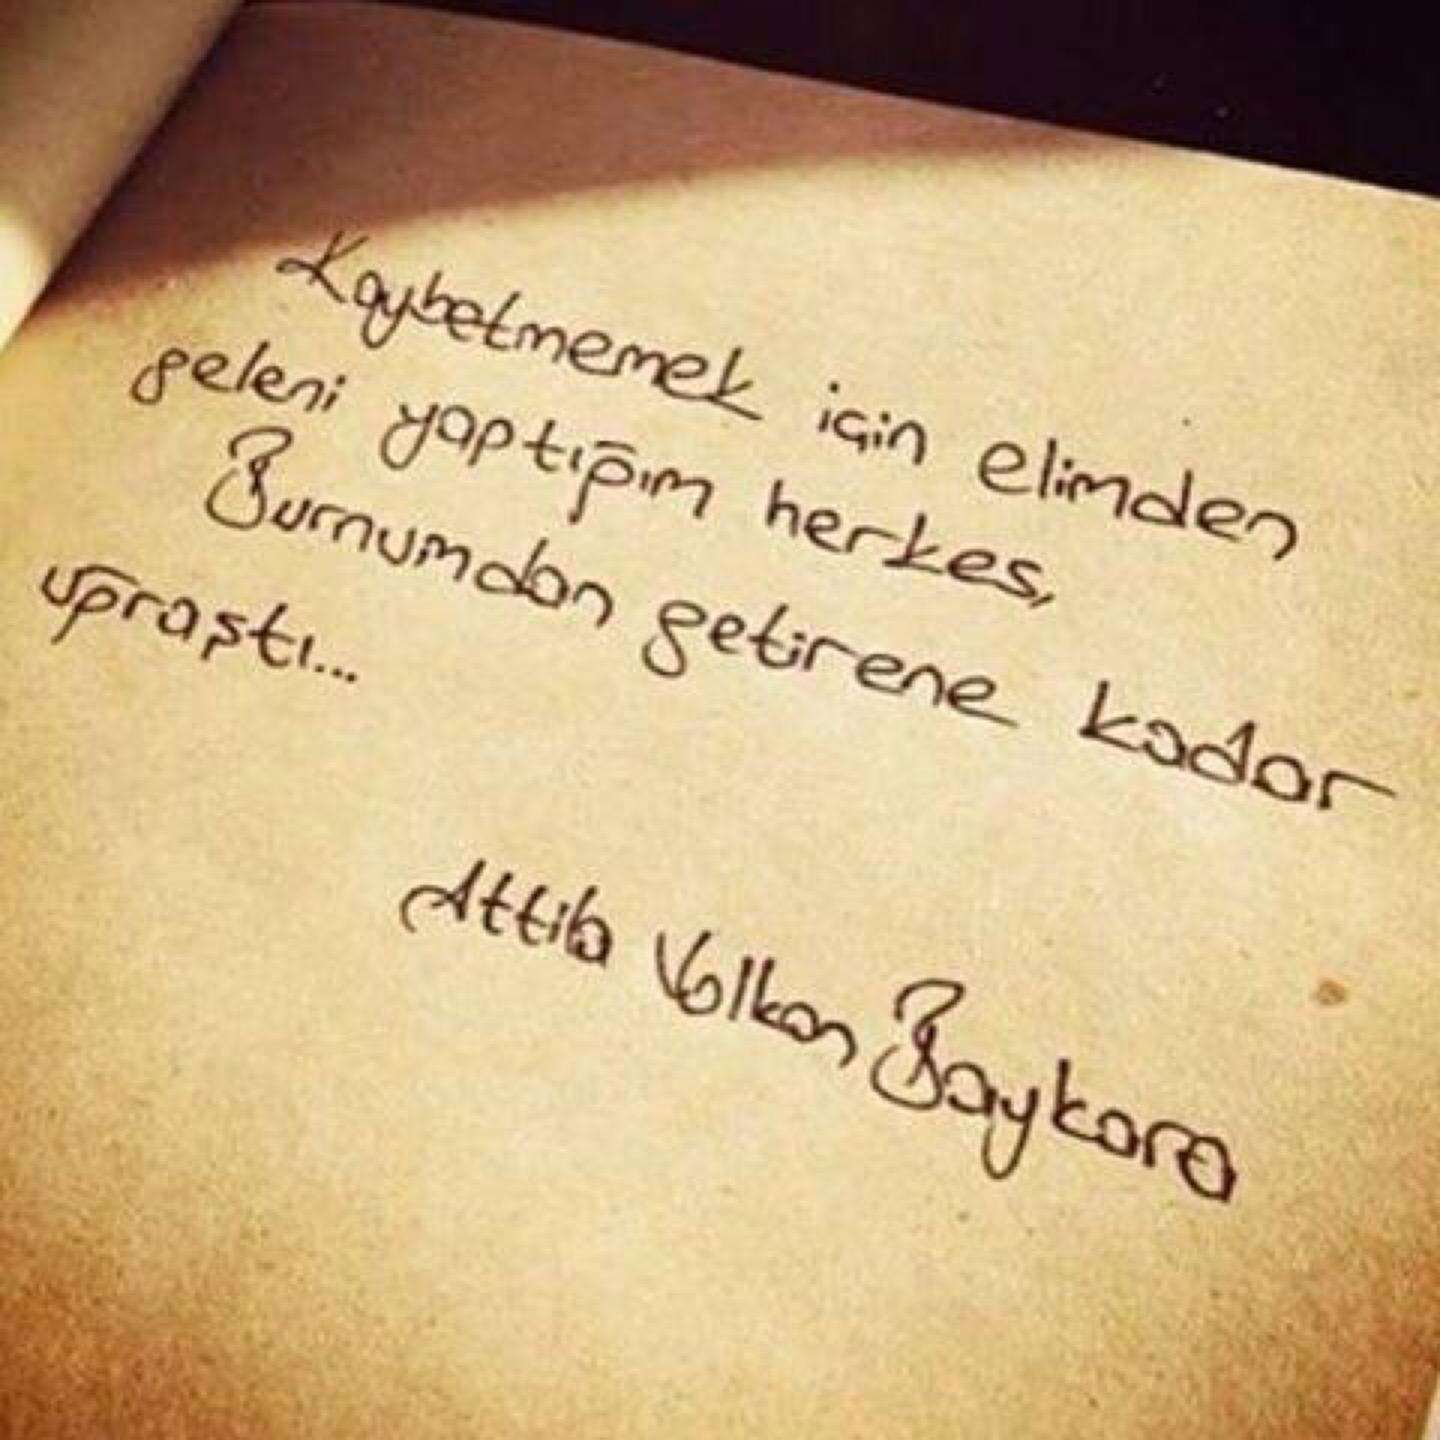 Kaybetmemek için elimden
geleni yaptığım herkes,
Burnumdan getirene kadar
uğraştı...
Attila Volkan Baykara